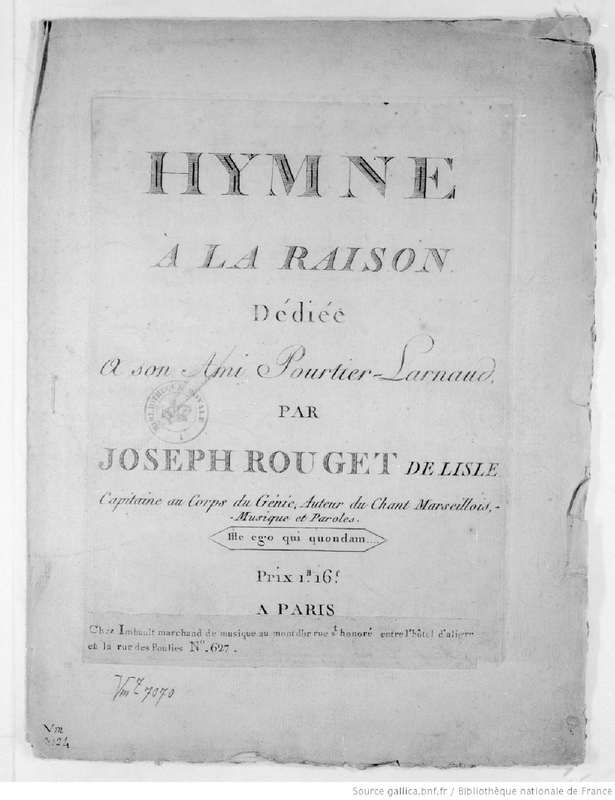 HYMNE
A LA RAISON.
Dédiée
A son Ami Pourtier-Larnaud,
PAR
JOSEPH ROUGET DE LISLE
Capitaine au Corps du Génie, Auteur du Chant Marseillois,-
-Musique et Paroles.
Ille ego qui quondam....
Prix 1.ᵗᵗ 16.ˢ
A PARIS
Chez Imbault marchand de musique au mont d'or rue S.ᵗ honoré entre l'hôtel d'aligre
et la rue des Poulies Nº. 627.
BIBLIOTHEQUE ROYALE
Vm⁷ 7070
Vm
Source gallica.bnf.fr / Bibliothèque nationale de France